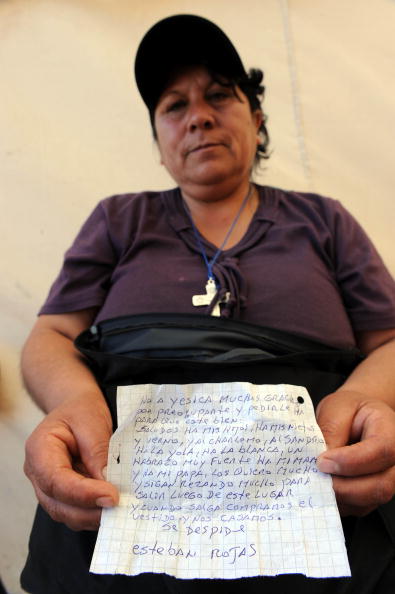 NO A YESICA MUCHAS GRACIAS
POR PREOCUPARTE Y PEDIRLE HA
PARA QUE ESTE BIEN.
SALUDOS HA MIS HIJOS, HA MIS NIETOS
Y YERNO, Y AL CHARLEMO, AL SANDRO
HA LA YOLA, HA LA BLANCA, UN
ABRAZO MUY FUERTE HA MI MAM
Y HA MI PAPA, LOS QUIERO MUCHO
Y SIGAN REZANDO MUCHO PARA
SALIR LUEGO DE ESTE LUGAR
Y CUANDO SALGA COMPRAMOS EL
VESTIDO Y NOS CASAMOS.
SE DESPIDE
ESTEBAN ROJAS